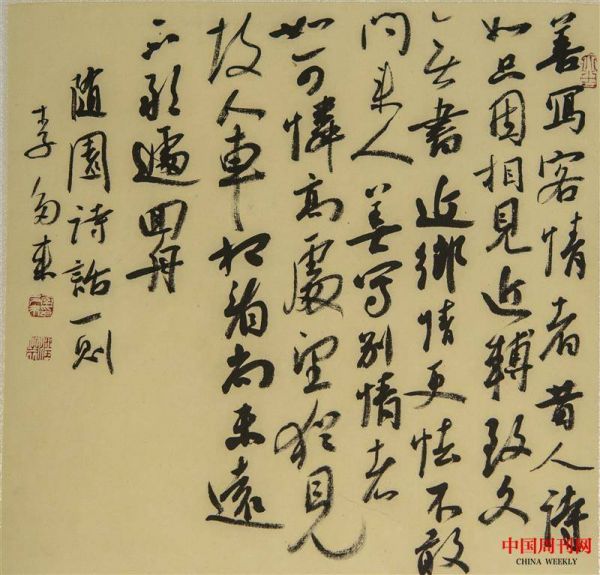 善寫客情者昔人詩
如只因相見近轉致久
无書近鄉情更怯不敢
問來人善写別情者
如可憐高處望猶見
故人車相看尚未遠
不敢遽回舟
随園詩話一則
李
中国周刊网
CHINA WEEKLY